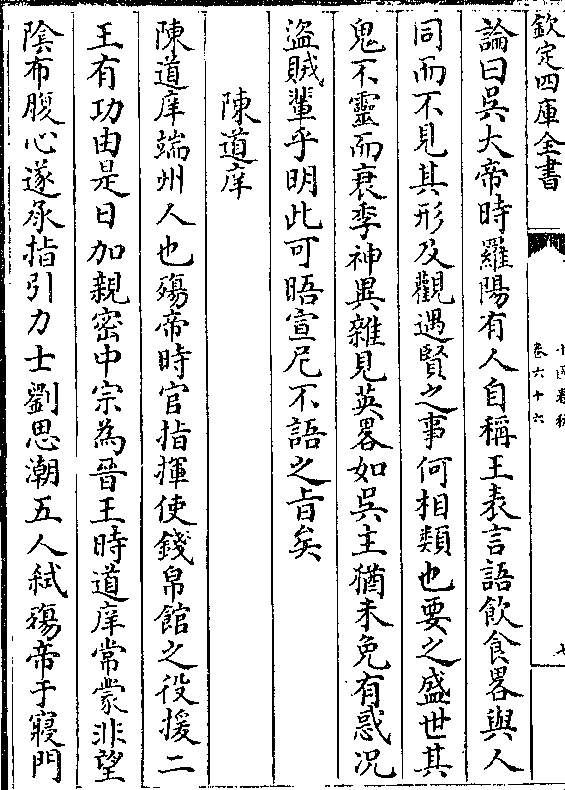 欽定四庫全書
十國春秋
卷六十六
七
論曰吳大帝時羅陽有人自稱王表言語飲食畧與人
同而不見其形及觀遇賢之事何相類也要之盛世其
鬼不靈而衰季神異雜見英畧如吳主猶未免有惑况
盜賊輩乎明此可晤宣尼不語之旨矣
陳道庠
陳道庠端州人也殤帝時官指揮使錢帛館之役援二
王有功由是日加親密中宗為晉王時道庠常蒙非望
隂布腹心遂承指引力士劉思潮五人弑殤帝于寢門